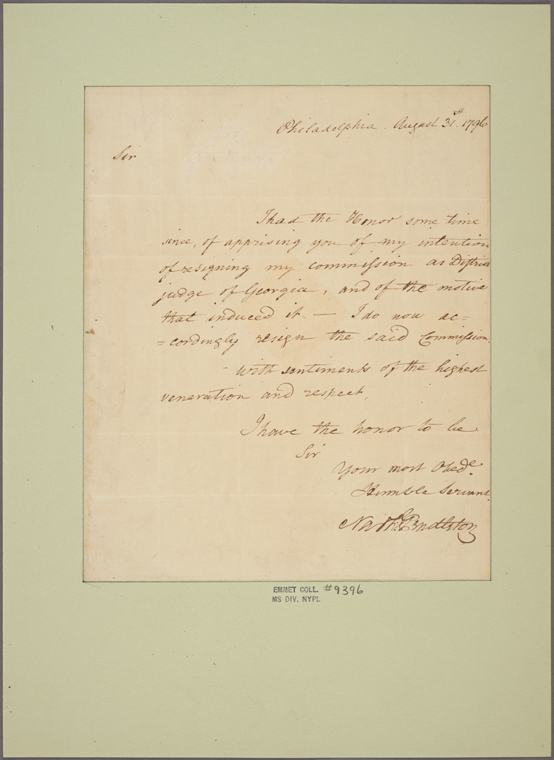 Philadelphia. August 31st. 1796
Sir
I had the Honor some time
since, of apprising you of my intention
of resigning my commission as District
judge of Georgia, and of the motive
that induced it. — I do now ac=
=cordingly resign the said Commission.
With sentiments of the highest
veneration and respect,
I have the honor to be
Sir
Your most Obede.
Humble Servant.
Nath. Pendleton
EMMET COLL. #9396
MS DIV. NYPL